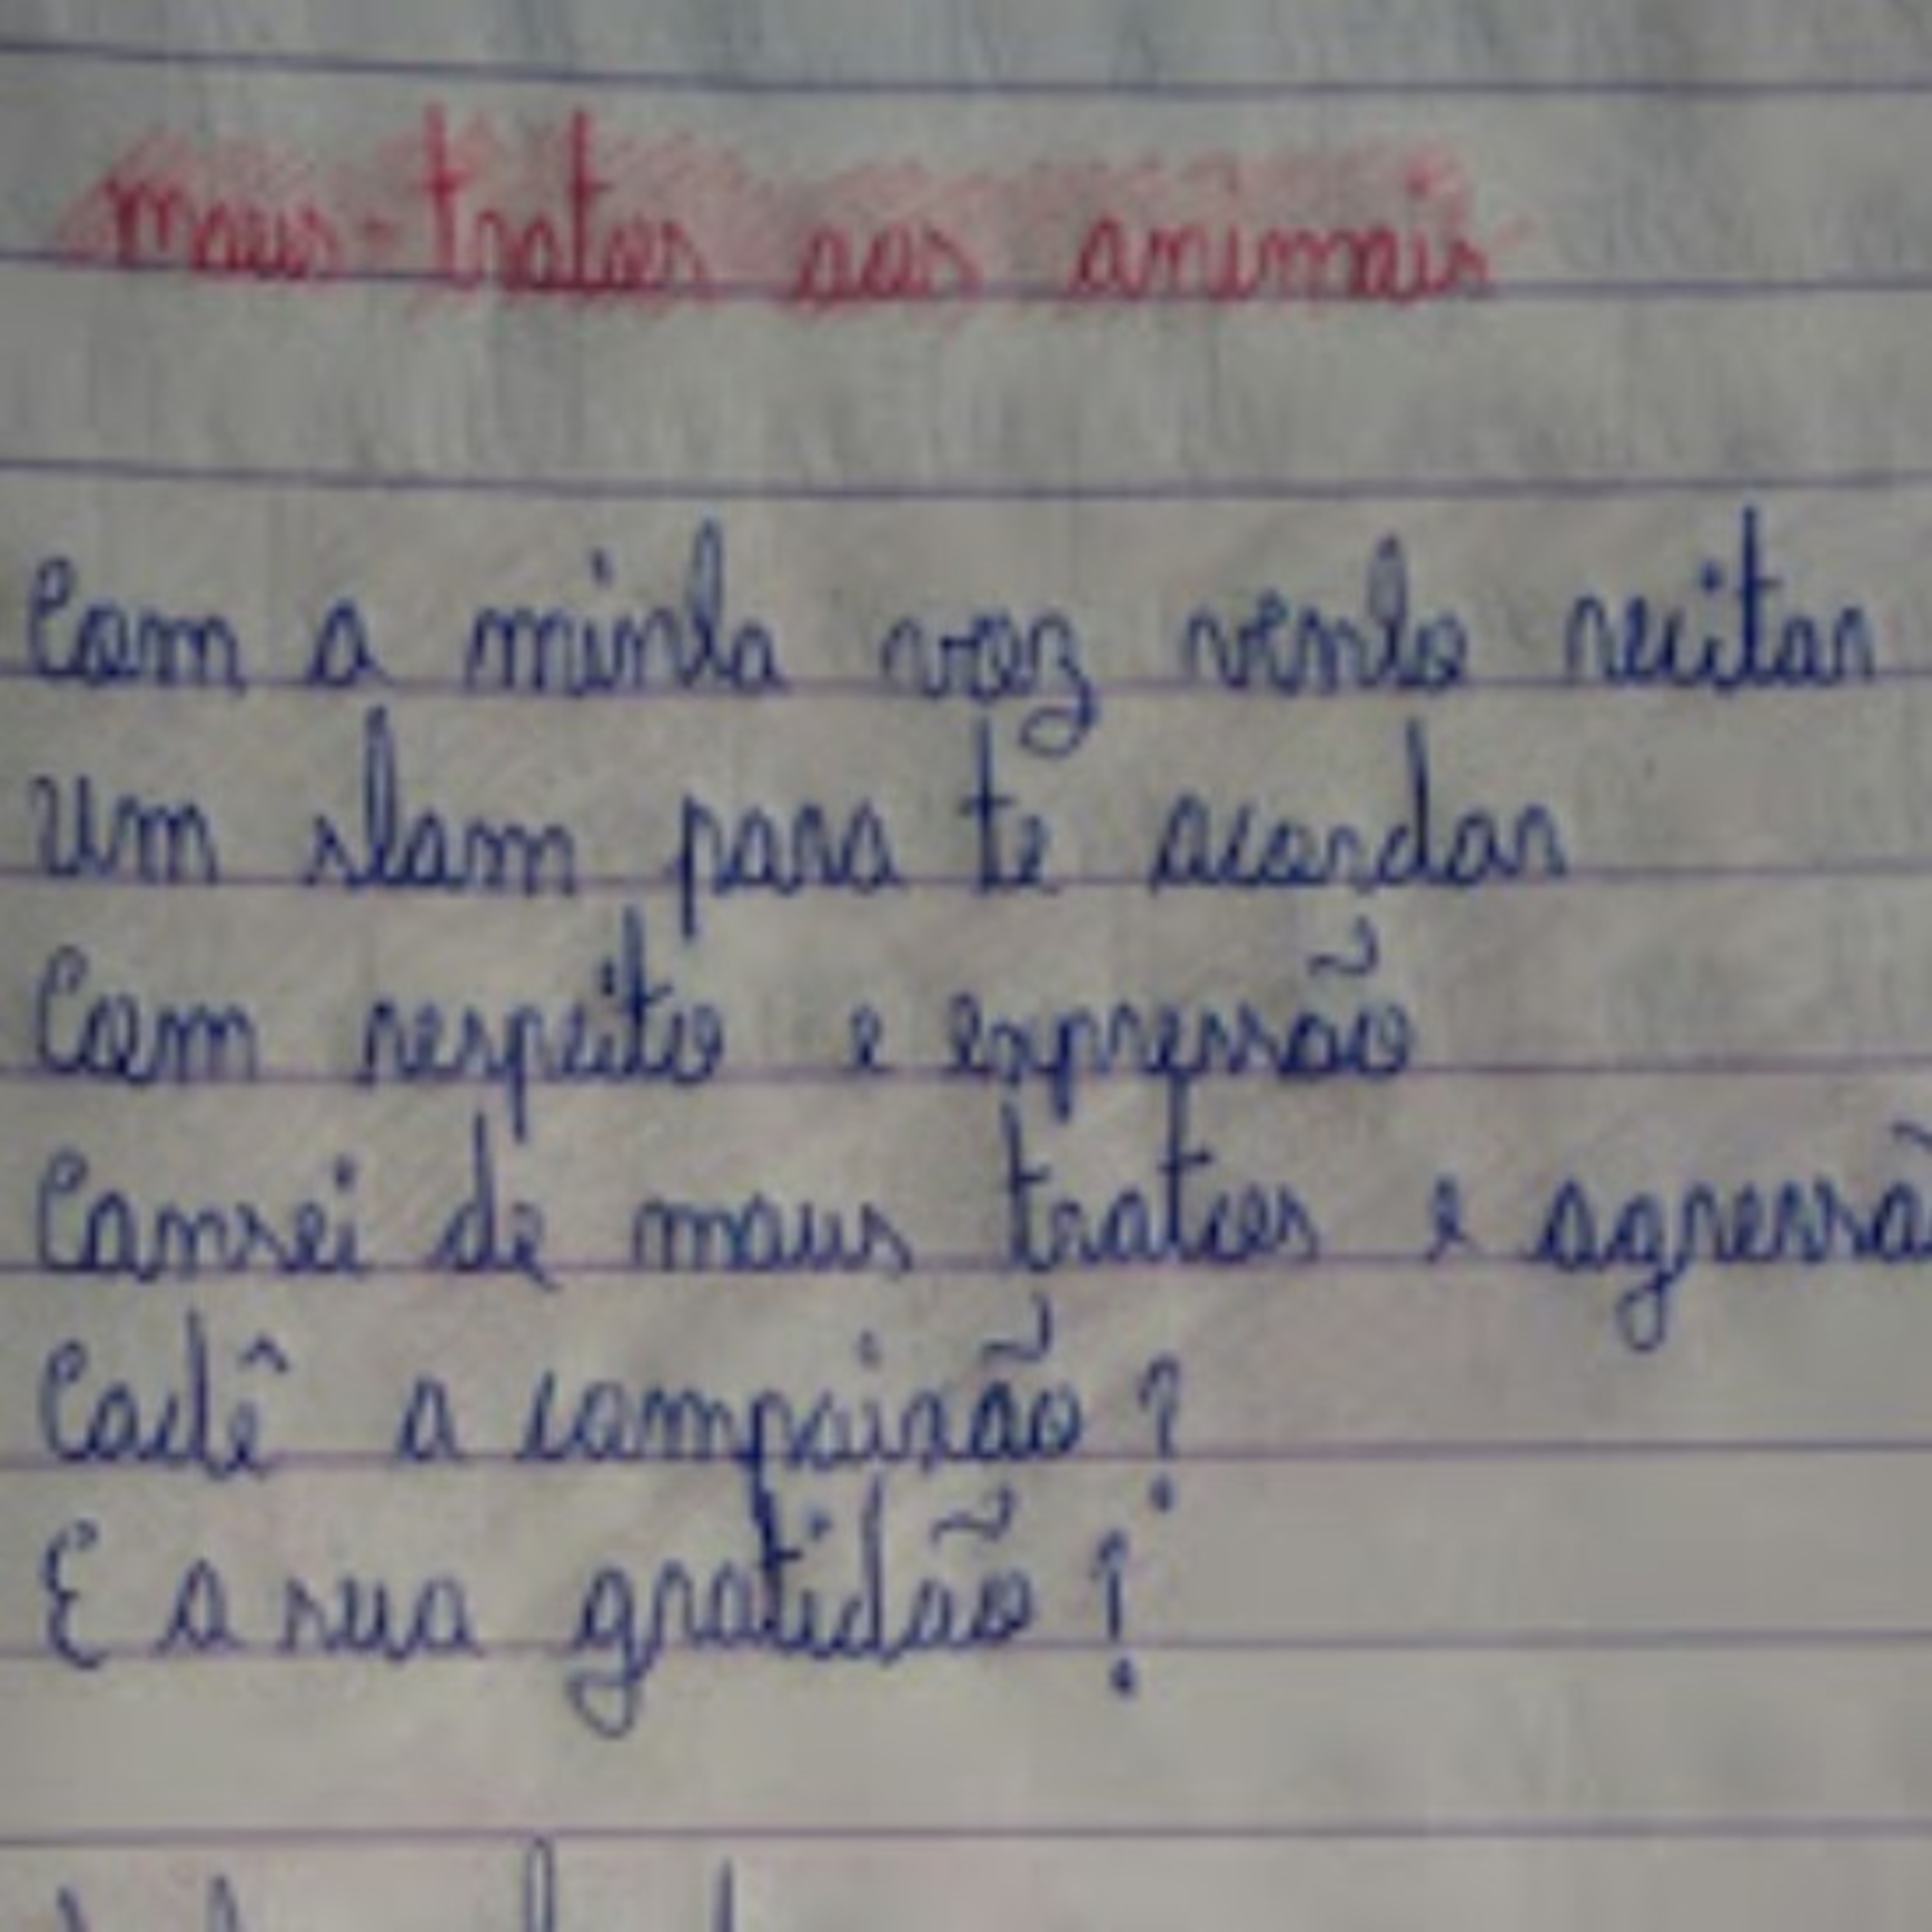 maus-tratos aos animais
Com a minha voz venho recitar
um slam para te acordar
Com respeito e expressão
Cansei de maus tratos e agressã
Cadê a compaixão?
E a sua gratidão?